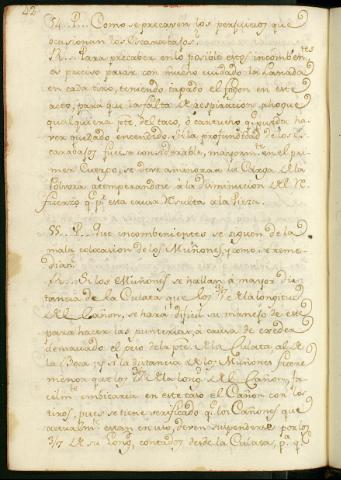 42
54.. P... Como se precaven los perjuicios que
ocasionan los Escaravajos.
R... Para precaber en lo posible estos incombentes
es preciso pasar con mucho cuidado la Lanada
en cada tiro, teniendo tapado el fogon en este
acto, para que la falta de respiracion ahogue
qualquiera pte. del taco, ó cartucho que pueda ha-
ver quedado encendido. Si la profundidad de los Es-
caravajos fuese considerable, mayormte. en el pri-
mer Cuerpo, se deve aminorar la Carga de la
polvora atemperandose á la diminucion del Re-
fuerzo q. pr. esta causa resulta a la Pieza.
55.. P... Que incombenientes se siguen de la
mala colocacion de los Muñones, y como se reme-
dian.
R... Si los Muñones se hallan á mayor dis-
tancia de la Culata que los 3/7 de la longitud
del Cañon, se hará dificil su manejo de este
para hacer las punterias, á causa de exceder
demasiado el peso de la pte. de la Culata al de
la Boca; y si la distancia de los Muñones fuere
menor que los 3/7 de la long. del Cañon,
en este caso el Cañon con los
tiros, pues se tiene verificado q. los Cañones que
actualmte. estan en uso, deven suspenderse por los
3/7 de su Long. contados desde la Culata, pa. q.